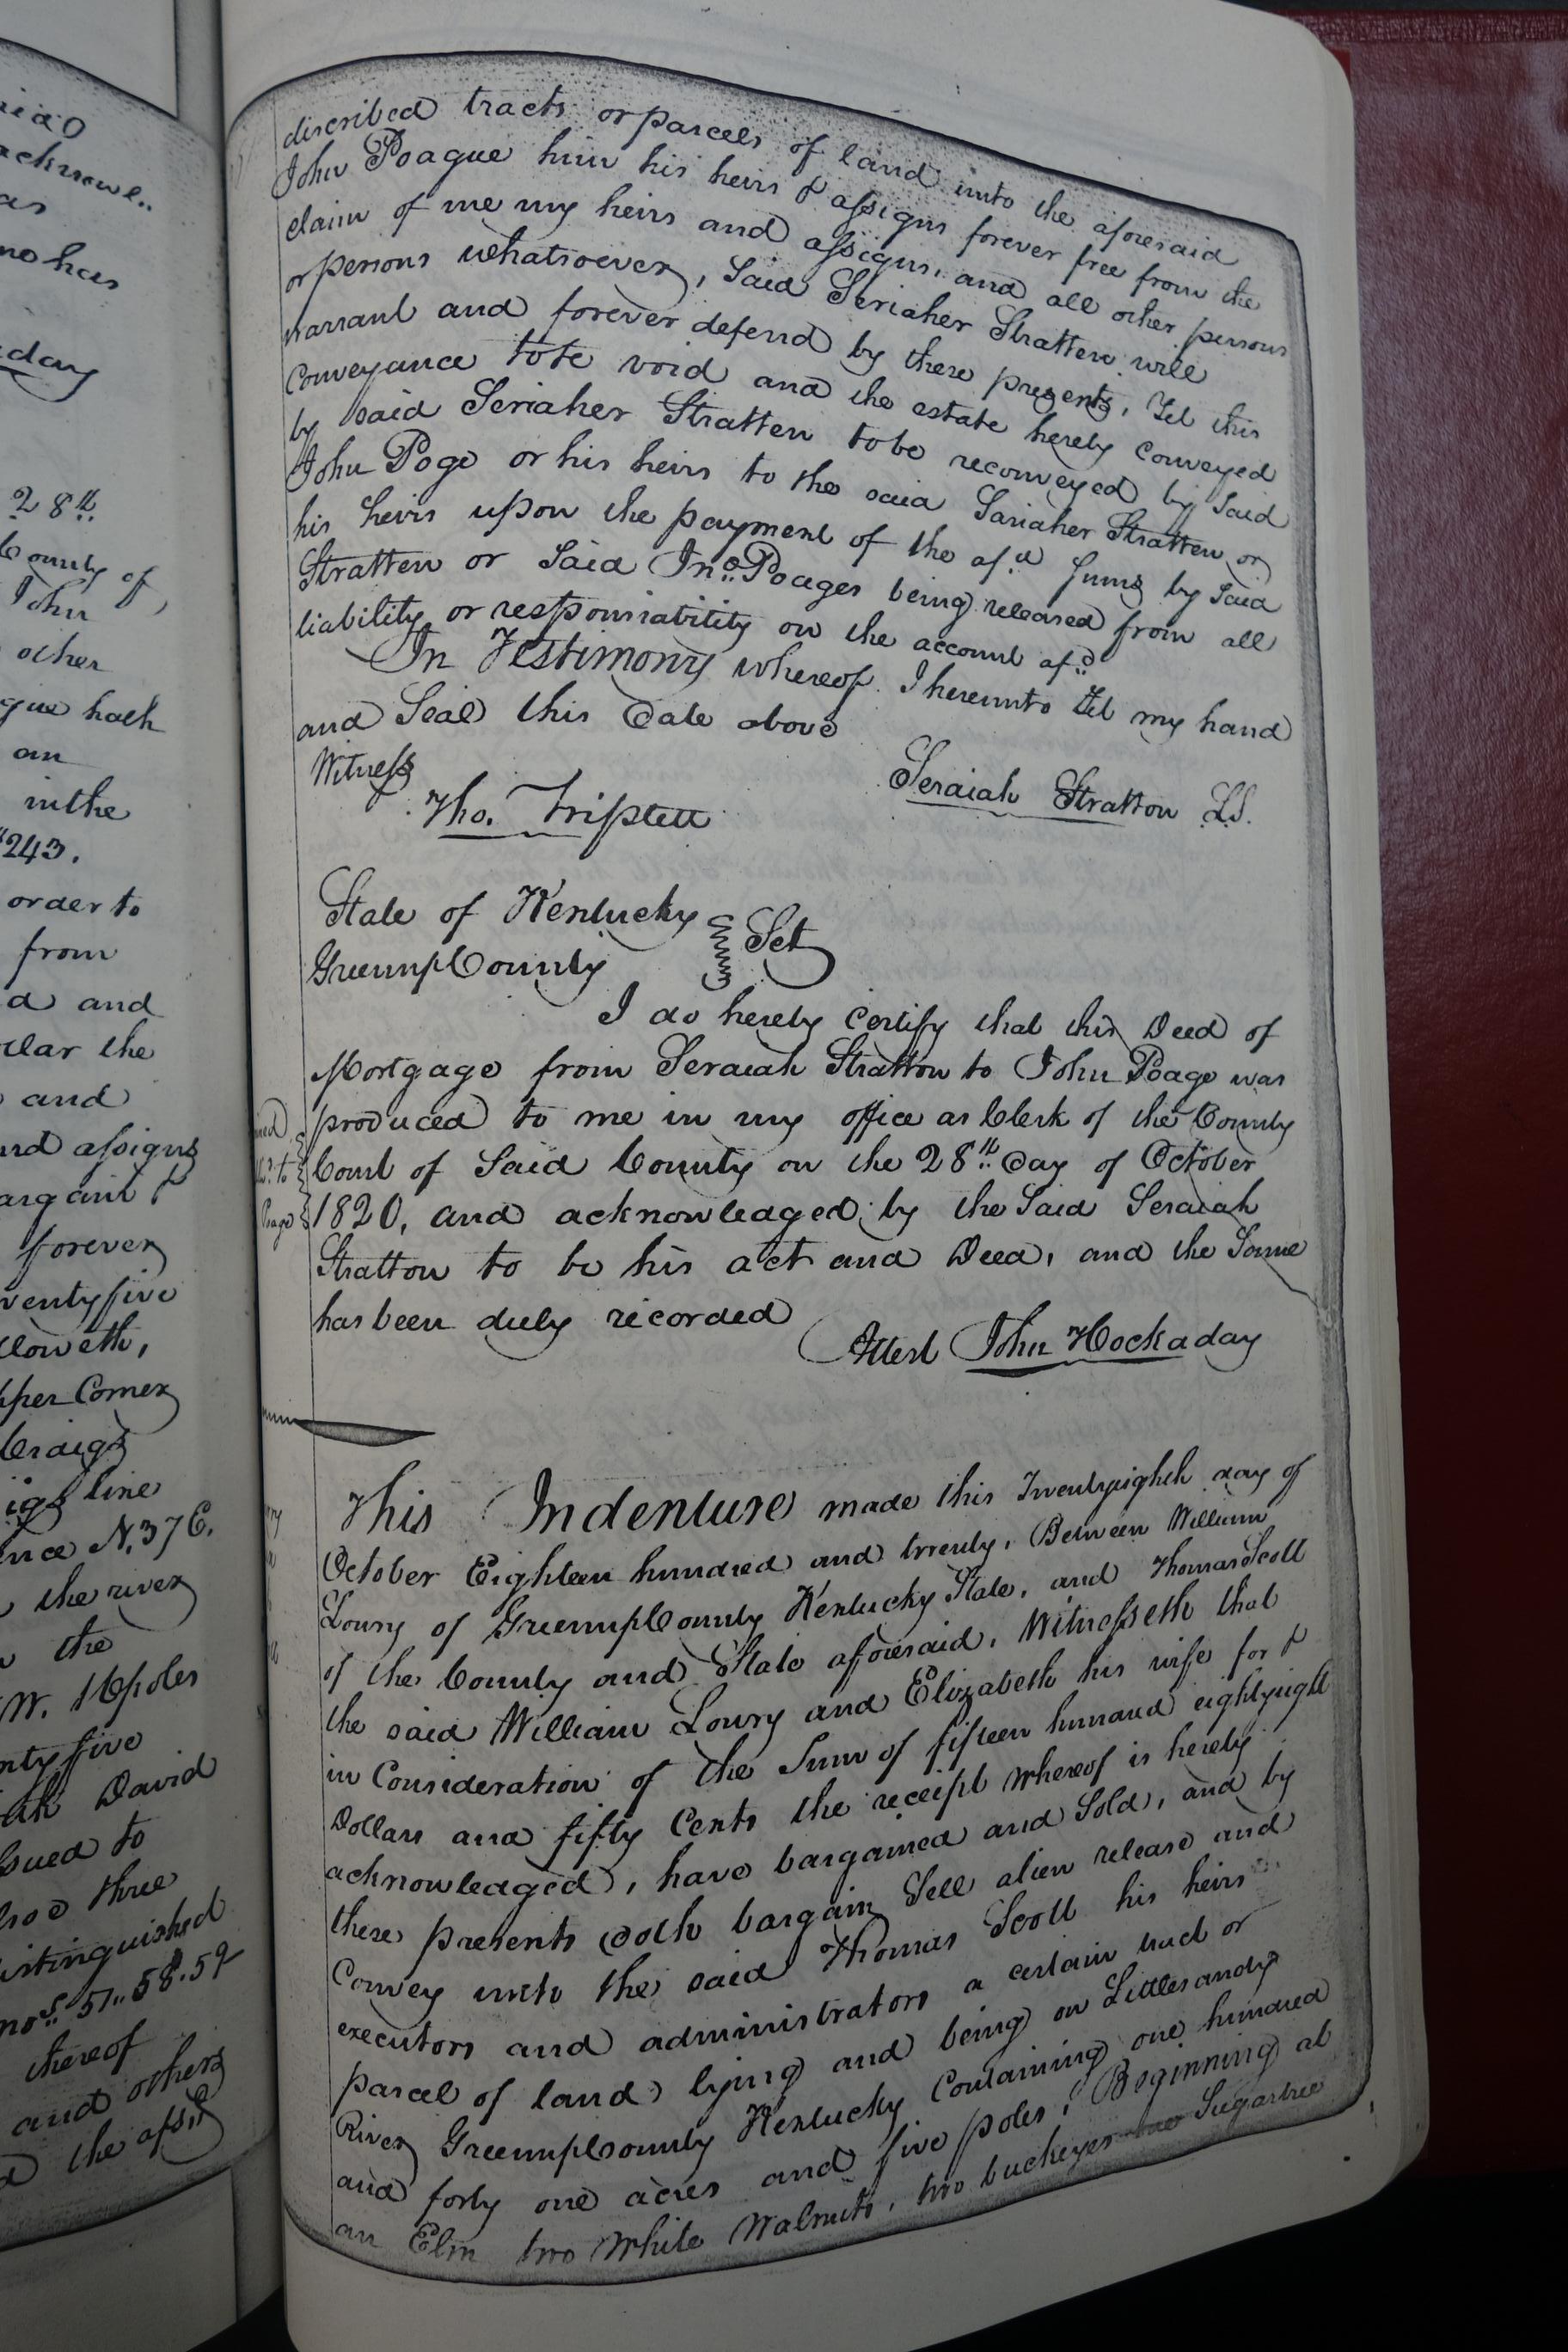 iaid
acknowl..
as
no has
day
28th
County of
John
other
gue hath
an
in the
243.
order to
from
d and
ular the
and
and assigns
argain &
forever
wenty five
lloweth,
pper Corner
Craigs
igs line
nce N. 37 E.
the river
the
W. 16 poles
nty five
ah David
sued to
also three
istinguished
nos. 57.. 58. 59
thereof
and others
the afsd
discribed tracts or parcels of land unto the aforesaid
John Poague him his heirs & assigns forever free from the
claim of me my heirs and assigns, and all other persons
or persons whatsoever, Said Seriaher Stratten will
warrant and forever defend by these presents, Yet this
Conveyance tobe void and the estate hereby Conveyed
by said Seriaher Stratten tobe reconveyed by Said
John Poge or his heirs to the said Sariaher Stratten or
his heirs upon the payment of the afd Sums by Said
Stratten or Said Jno. Poages being released from all
liability or responsiability on the account afd
In Testimony whereof I hereunto Set my hand
and Seal this Date above
Witness
Tho. Triplett
Seraiah Stratton LS.
State of Kentucky
Greenup County Sct
I do hereby Certify that this Deed of
Mortgage from Seraiah Stratton to John Poage was
produced to me in my office as Clerk of the County
Court of Said County on the 28th Day of October
1820, and acknowledged by the Said Seraiah
Stratton to be his act and Deed, and the Same
has been duly recorded
Attest John Hockaday
This Indenture made this Twentyeighth day of
October Eighteen hundred and twenty, Between William
Lowry of Greenup County Kentucky State, and Thomas Scott
of the County and State aforesaid, Witnesseth that
the said William Lowry and Elizabeth his wife for &
in Consideration of the Sum of fifteen hundred eightyeight
Dollars and fifty Cents the receipt whereof is hereby
acknowledged, have bargained and Sold, and by
these presents doth bargain Sell alien release and
Convey unto the said Thomas Scott his heirs
executors and administrators a certain tract or
parcel of land lying and being on Littlesandy
River Greenup County Kentucky Containing one hundred
and forty one acres and five poles, Beginning at
an Elm two White Walnuts, two buckeyes Sugartree